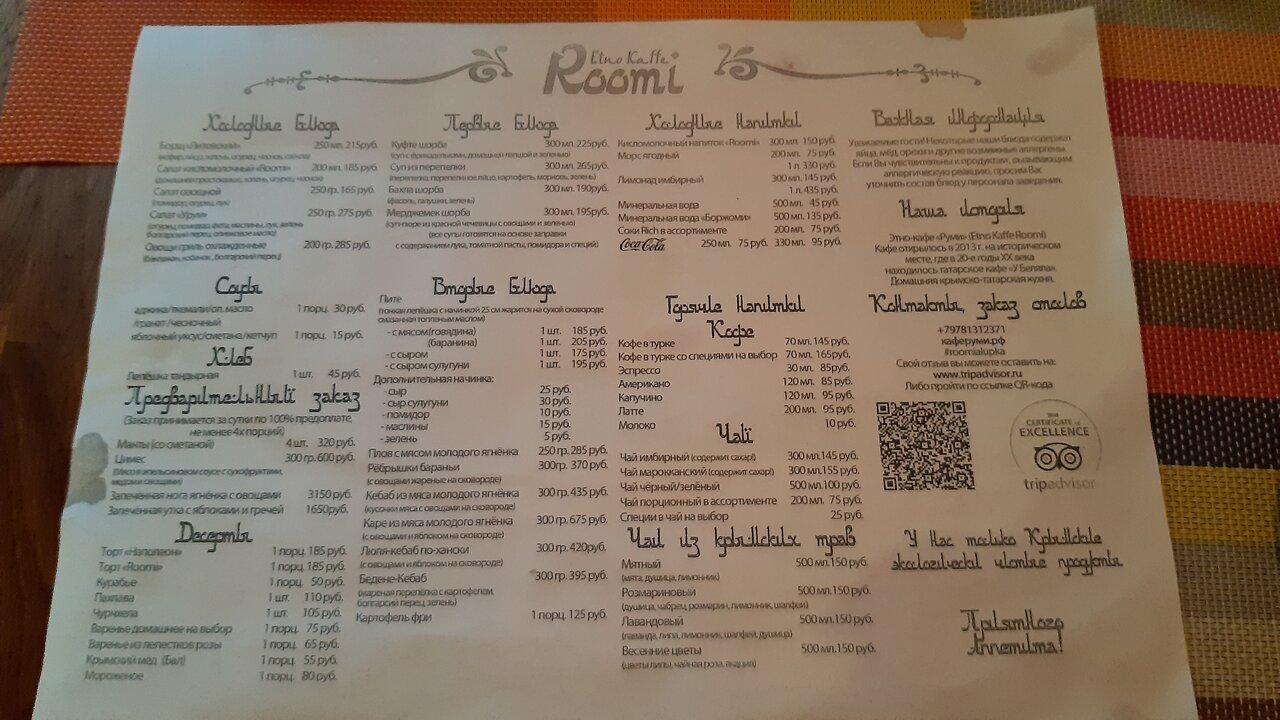 Etno Kaffe
Roomi
Холодные Блюда
Борщ «Литовский» 250 мл. 215руб.
(кефир, яйцо, зелень, огурец, чеснок, свекла)
Салат кисломолочный «Roomi» 200 мл. 185 руб.
(домашняя простокваша, зелень, огурец, чеснок)
Салат овощной 250 гр. 165 руб.
(помидор, огурец, лук)
Салат «Урум» 250 гр. 275 руб.
(огурец, помидор, фета, маслины, лук, зелень
болгарский перец, оливковое масло)
Овощи гриль охлажденные 200 гр. 285 руб.
(баклажан, кабачок, болгарский перец)
Соусы
аджика/ткемали/ол. масло 1 порц. 30 руб.
/гранат/чесночный
яблочный уксус/сметана/кетчуп 1 порц. 15 руб.
Хлеб
Лепёшка тандырная 1 шт. 45 руб.
Предварительный заказ
(Заказ принимается за сутки по 100% предоплате,
не менее 4х порций)
Манты (со сметаной) 4 шт. 320 руб.
Цимес 300 гр. 600 руб.
(Мясо в апельсиновом соусе с сухофруктами,
медом и овощами)
Запечённая нога ягнёнка с овощами 3150 руб.
Запечённая утка с яблоками и гречей 1650руб.
Десерты
Торт «Наполеон» 1 порц. 185 руб.
Торт «Roomi» 1 порц. 185 руб.
Курабье 1 порц. 50 руб.
Пахлава 1 шт. 110 руб.
Чурчхела 1 шт. 105 руб.
Варенье домашнее на выбор 1 порц. 75 руб.
Варенье из лепестков розы 1 порц. 65 руб.
Крымский мёд (Бал) 1 порц. 55 руб.
Мороженое 1 порц. 80 руб.
Первые Блюда
Куфте шорба 300 мл. 225руб.
(суп с фрикадельками, домашней лапшой и зеленью)
Суп из перепелки 300 мл. 265руб.
(перепелка, перепелиное яйцо, картофель, морковь, зелень)
Бакла шорба 300 мл. 190руб.
(фасоль, галушки, зелень)
Мерджемек шорба 300 мл. 195руб.
(суп-пюре из красной чечевицы с овощами и зеленью)
(все супы готовятся на основе заправки
с содержанием лука, томатной пасты, помидора и специй)
Вторые Блюда
Пите
(тонкая лепёшка с начинкой 25 см жарится на сухой сковороде
смазанная топленым маслом)
- с мясом(говядина) 1 шт. 185 руб.
(баранина) 1 шт. 205 руб.
- с сыром 1 шт. 175 руб.
- с сыром сулугуни 1 шт. 195 руб.
Дополнительная начинка:
- сыр 25 руб.
- сыр сулугуни 30 руб.
- помидор 10 руб.
- маслины 15 руб.
- зелень 5 руб.
Плов с мясом молодого ягнёнка 250 гр. 285 руб.
Рёбрышки бараньи 300гр. 370 руб.
(с овощами жареные на сковороде)
Кебаб из мяса молодого ягнёнка 300 гр. 435 руб.
(кусочки мяса с овощами на сковороде)
Каре из мяса молодого ягнёнка 300 гр. 675 руб.
(с овощами и яблоком на сковороде)
Люля-кебаб по-хански 300 гр. 420руб.
(с овощами и яблоком на сковороде)
Бедене-Кебаб 300 гр. 395 руб.
(жареная перепёлка с картофелем,
болгарски перец, зелень)
Картофель фри 1 порц. 125 руб.
Холодные Напитки
Кисломолочный напиток «Roomi» 300 мл. 150 руб.
Морс ягодный 200 мл. 75 руб.
1 л. 330 руб.
Лимонад имбирный 300 мл. 145 руб.
1 л. 435 руб.
Минеральная вода 500 мл. 45 руб.
Минеральная вода «Боржоми» 500 мл. 135 руб.
Соки Rich в ассортименте 200 мл. 75 руб.
Coca-Cola 250 мл. 75 руб. 330 мл. 95 руб.
Горячие Напитки
Кофе
Кофе в турке 70 мл. 145 руб.
Кофе в турке со специями на выбор 70 мл. 165руб.
Эспрессо 30 мл. 85руб.
Американо 120 мл. 85 руб.
Капучино 120 мл. 95 руб.
Латте 200 мл. 95 руб.
Молоко 10 руб.
Чай
Чай имбирный (содержит сахар!) 300 мл. 145 руб.
Чай марокканский (содержит сахар!) 300 мл. 155 руб.
Чай чёрный/зелёный 500 мл. 100 руб.
Чай порционный в ассортименте 200 мл. 75 руб.
Специи в чай на выбор 25 руб.
Чай из крымских трав
Мятный 500 мл. 150 руб.
(мята, душица, лимонник)
Розмариновый 500 мл. 150 руб.
(душица, чабрец, розмарин, лимонник, шалфей)
Лавандовый 500 мл. 150 руб.
(лаванда, липа, лимонник, шалфей, душица)
Весенние цветы 500 мл. 150 руб.
(цветы липы, чайная роза, акация)
Важная Информация
Уважаемые гости! Некоторые наши блюда содержат
яйца, мёд, орехи и другие возможные аллергены.
Если Вы чувствительны к продуктам, вызывающим
аллергическую реакцию, просим Вас
уточнять состав блюд у персонала заведения.
Наша история
Этно-кафе «Руми» (Etno Kaffe Roomi)
Кафе открылось в 2013 г. на историческом
месте, где в 20-е годы XX века
находилось татарское кафе «У Беляла».
Домашняя крымско-татарская кухня.
Контакты, заказ столов
+79781312371
каферуми.рф
#roomialupka
Свой отзыв вы можете оставить на:
www.tripadvisor.ru
Либо пройти по ссылке QR-кода
CERTIFICATE of
EXCELLENCE
tripadvisor
У Нас только Крымские
экологически чистые продукты
Приятного
Аппетита!